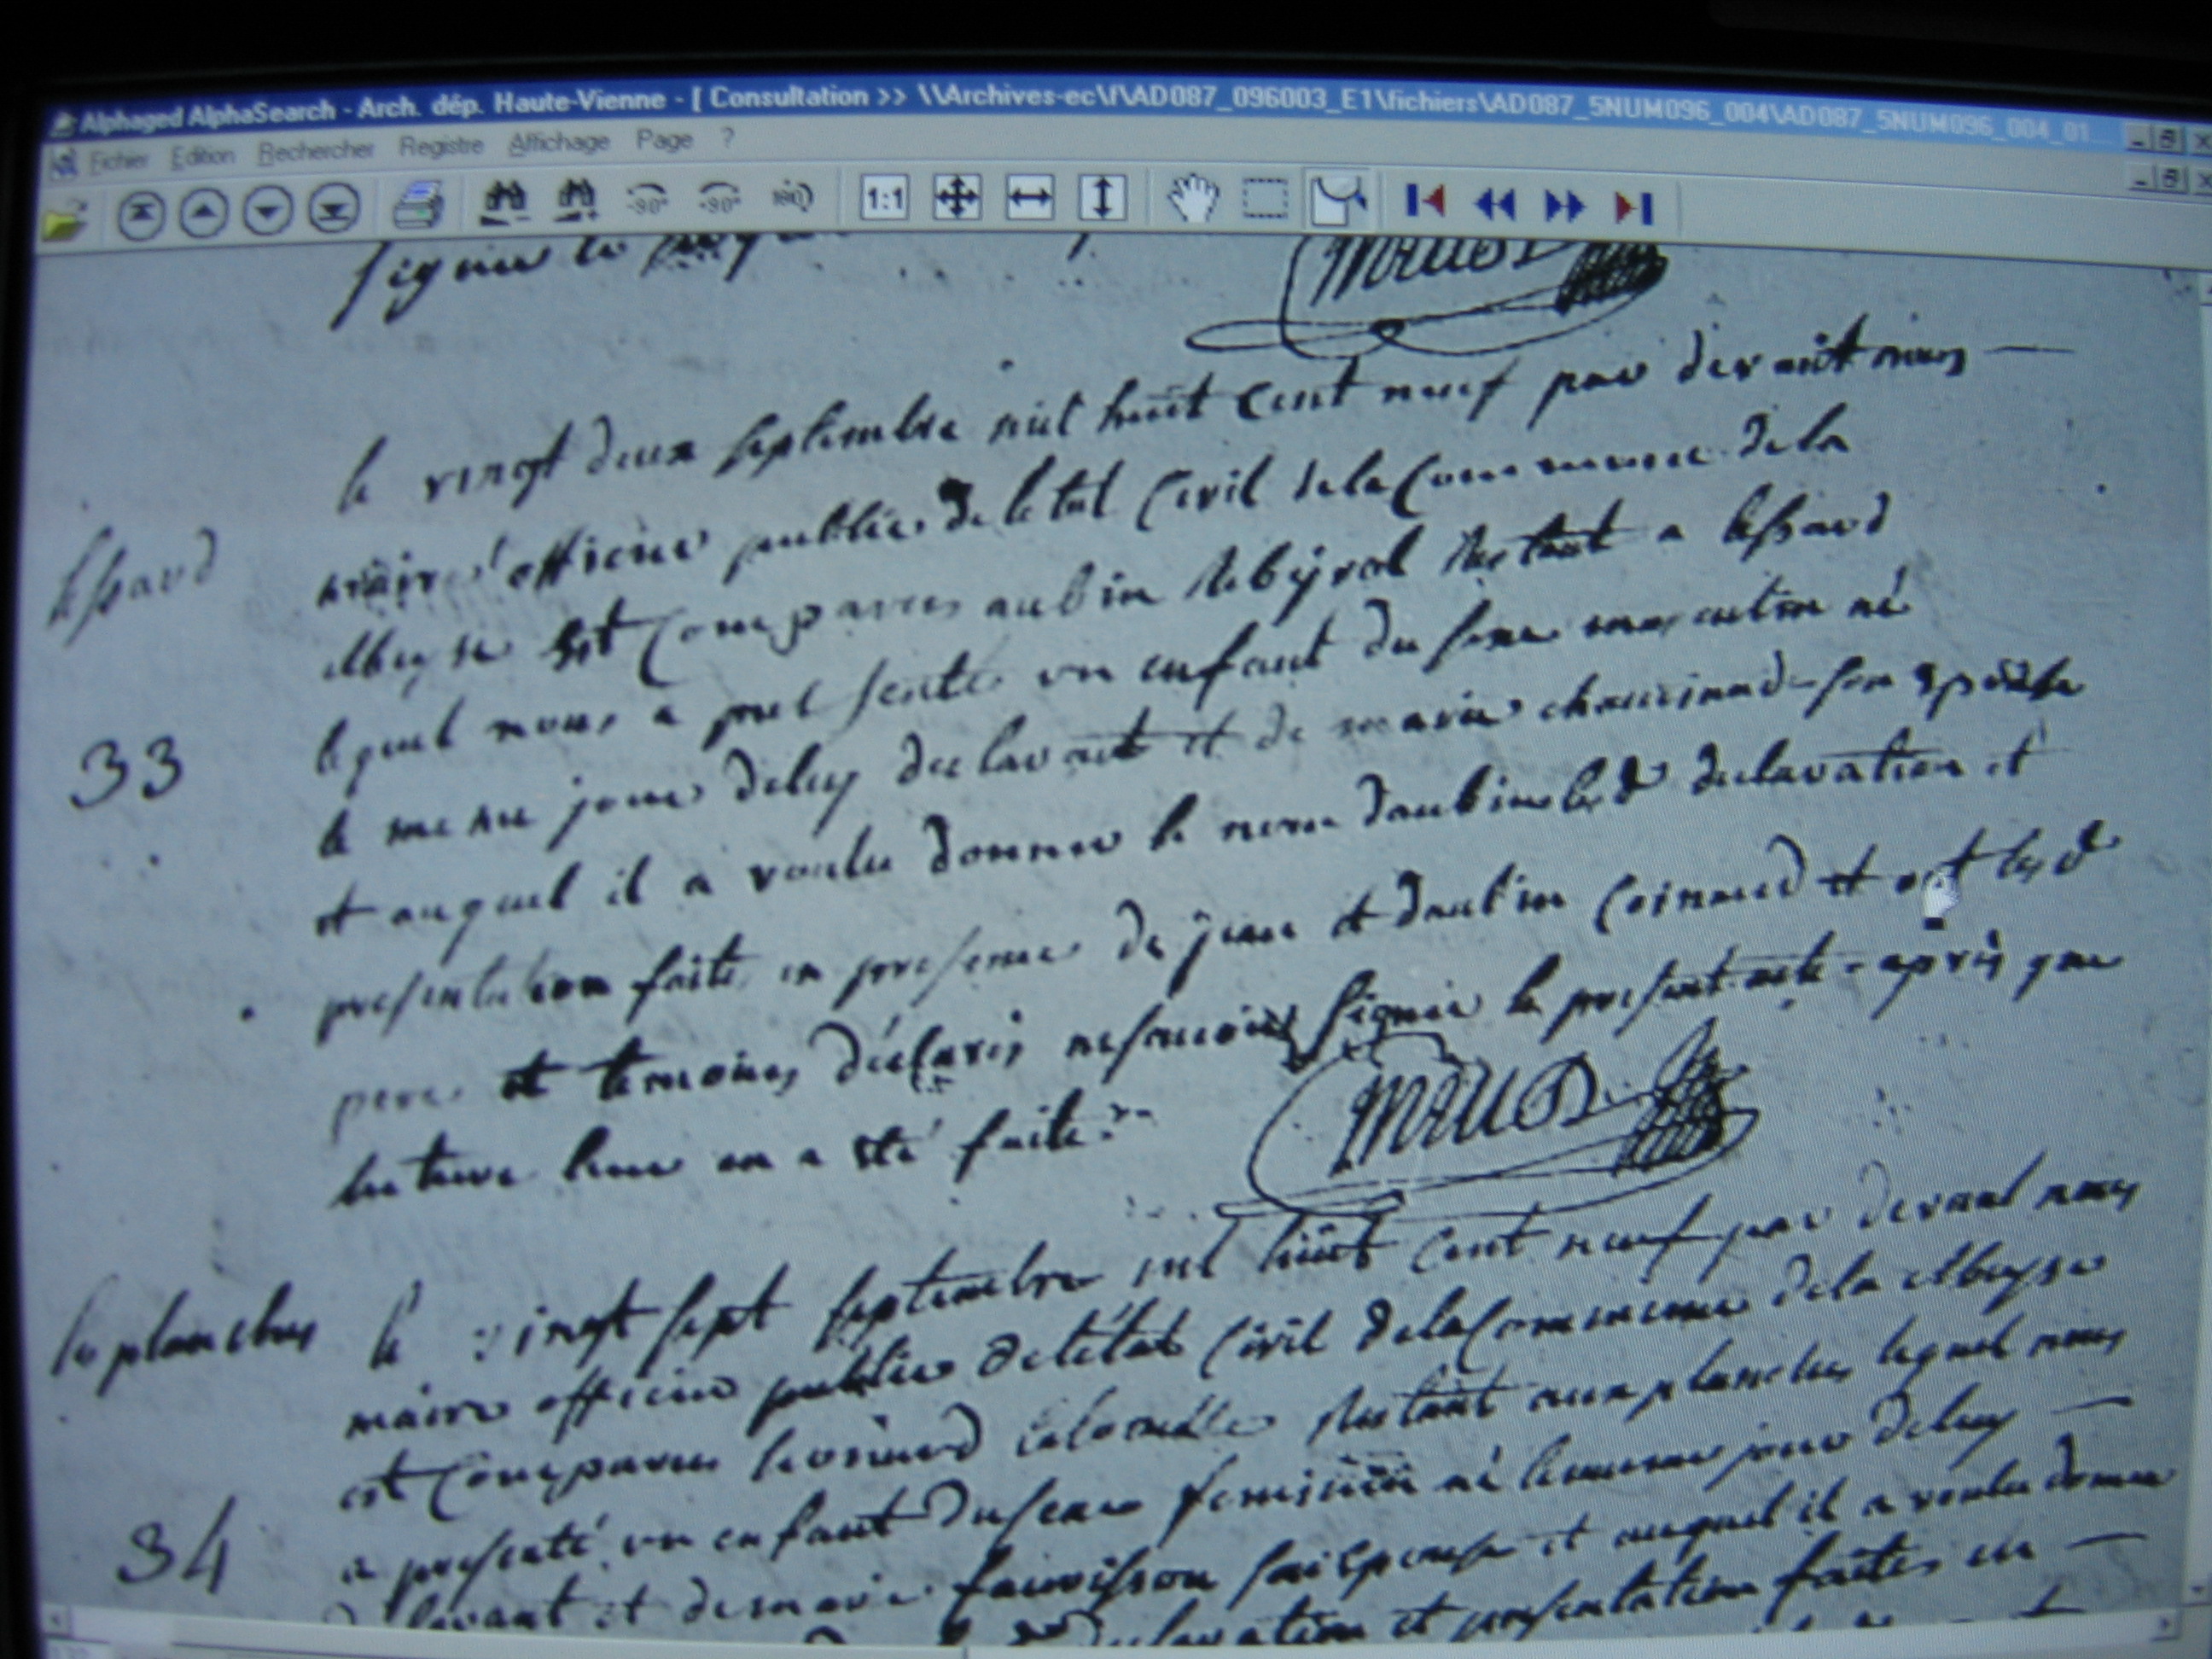 Alphaged AlphaSearch - Arch. dép. Haute-Vienne - [ Consultation >> \\Archives-ec\f\AD087_096003_E1\fichiers\AD087_5NUM096_004\AD087_5NUM096_004_01...
Fichier Edition Rechercher Registre Affichage Page ?
-90° +90° 180 1:1
signer le
le vingt deux septembre mil huit cent neuf par devant nous
maire officier public de letat Civil dela Commune dela
Meyze est Comparu aubin restant a
33
lequel nous a presenté un enfant du sexe masculin né
le meme jour deluy declarant et de marie son epouse
et auquel il a voulu donner le nom daubin lesd declaration et
presentation faite en presence de jean et daubin et ont lesd
pere et temoins déclaré ne savoir signer le present acte après que
lecture leur en a eté faite
les planches
le vingt sept septembre mil huit cent neuf par devant nous
maire officier public de létat Civil dela Commune dela Meyze
est Comparu leonard restant aux planches lequel nous
34
a presenté un enfant du sexe feminin né le meme jour deluy
declarant et de marie son epouse et auquel il a voulu donner
declaration et presentation faites en